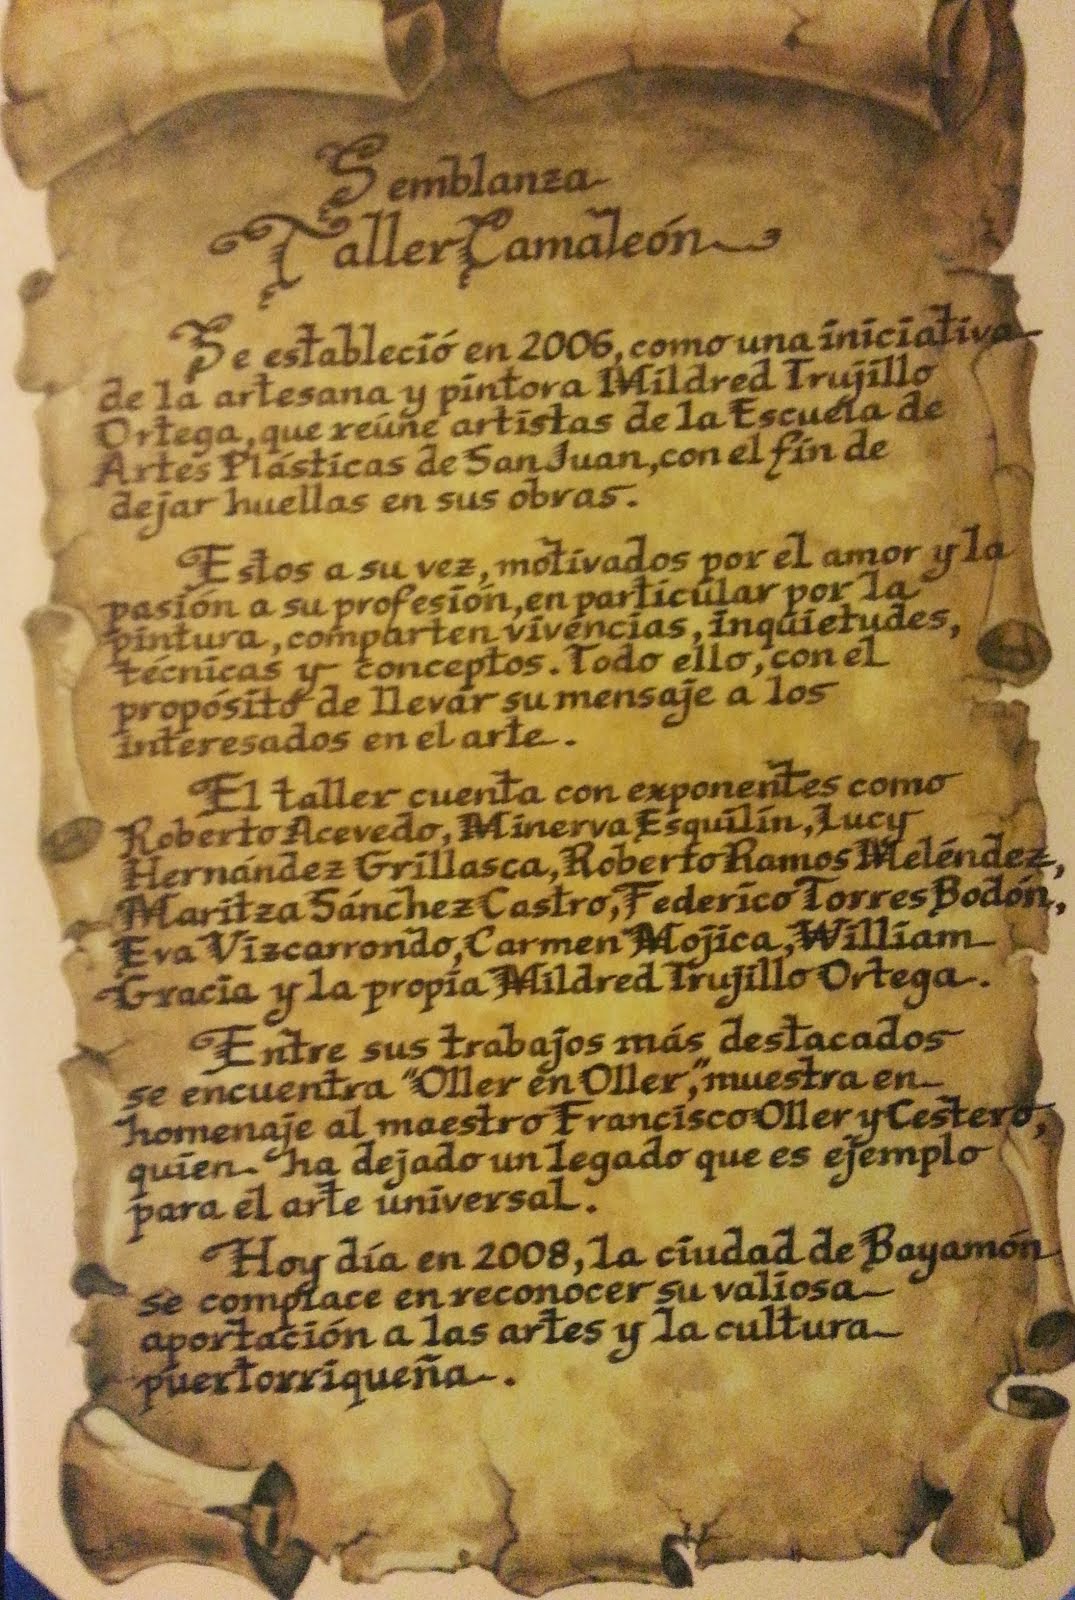 Semblanza
Taller Camaleón
Se estableció en 2006, como una iniciativa
de la artesana y pintora Mildred Trujillo
Ortega, que reúne artistas de la Escuela de
Artes Plásticas de San Juan, con el fin de
dejar huellas en sus obras.
Estos a su vez, motivados por el amor y la
pasión a su profesión, en particular por la
pintura, comparten vivencias, inquietudes,
técnicas y conceptos. Todo ello, con el
propósito de llevar su mensaje a los
interesados en el arte.
El taller cuenta con exponentes como
Roberto Acevedo, Minerva Esquilín, Lucy
Hernández Grillasca, Roberto Ramos Meléndez,
Maritza Sánchez Castro, Federico Torres Bodón,
Eva Vizcarrondo, Carmen Mojica, William
Gracia y la propia Mildred Trujillo Ortega.
Entre sus trabajos más destacados
se encuentra "Oller en Oller," muestra en
homenaje al maestro Francisco Oller y Cestero,
quien ha dejado un legado que es ejemplo
para el arte universal.
Hoy día en 2008, la ciudad de Bayamón
se complace en reconocer su valiosa
aportación a las artes y la cultura
puertorriqueña.